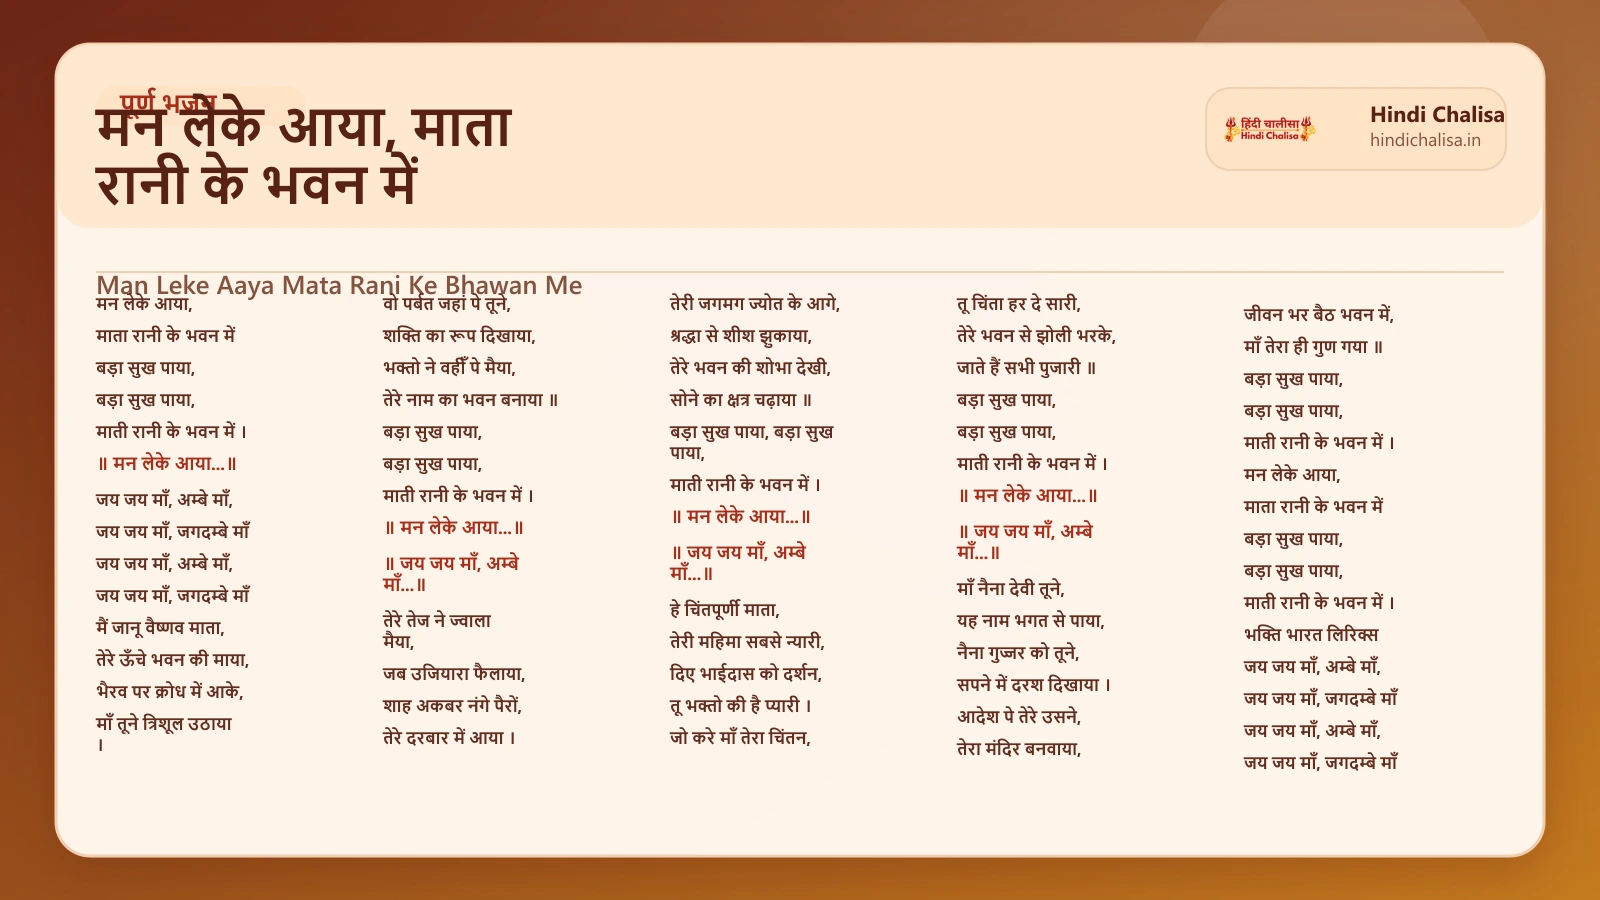 पूर्ण भजन
मन लेके आया, माता
रानी के भवन में
हिंदी चालीसा
Hindi Chalisa
Hindi Chalisa
hindichalisa.in
Man Leke Aaya Mata Rani Ke Bhawan Me
मन लेके आया,
माता रानी के भवन में
बड़ा सुख पाया,
बड़ा सुख पाया,
माती रानी के भवन में ।
॥ मन लेके आया...॥
जय जय माँ, अम्बे माँ,
जय जय माँ, जगदम्बे माँ
जय जय माँ, अम्बे माँ,
जय जय माँ, जगदम्बे माँ
मैं जानू वैष्णव माता,
तेरे ऊँचे भवन की माया,
भैरव पर क्रोध में आके,
माँ तूने त्रिशूल उठाया
।
वो पर्बत जहां पे तूने,
शक्ति का रूप दिखाया,
भक्तो ने वहीँ पे मैया,
तेरे नाम का भवन बनाया ॥
बड़ा सुख पाया,
बड़ा सुख पाया,
माती रानी के भवन में ।
॥ मन लेके आया...॥
॥ जय जय माँ, अम्बे
माँ...॥
तेरे तेज ने ज्वाला
मैया,
जब उजियारा फैलाया,
शाह अकबर नंगे पैरों,
तेरे दरबार में आया ।
तेरी जगमग ज्योत के आगे,
श्रद्धा से शीश झुकाया,
तेरे भवन की शोभा देखी,
सोने का क्षत्र चढ़ाया ॥
बड़ा सुख पाया, बड़ा सुख
पाया,
माती रानी के भवन में ।
॥ मन लेके आया...॥
॥ जय जय माँ, अम्बे
माँ...॥
हे चिंतपूर्णी माता,
तेरी महिमा सबसे न्यारी,
दिए भाईदास को दर्शन,
तू भक्तो की है प्यारी ।
जो करे माँ तेरा चिंतन,
तू चिंता हर दे सारी,
तेरे भवन से झोली भरके,
जाते हैं सभी पुजारी ॥
बड़ा सुख पाया,
बड़ा सुख पाया,
माती रानी के भवन में ।
॥ मन लेके आया...॥
॥ जय जय माँ, अम्बे
माँ...॥
माँ नैना देवी तूने,
यह नाम भगत से पाया,
नैना गुज्जर को तूने,
सपने में दरश दिखाया ।
आदेश पे तेरे उसने,
तेरा मंदिर बनवाया,
जीवन भर बैठ भवन में,
माँ तेरा ही गुण गया ॥
बड़ा सुख पाया,
बड़ा सुख पाया,
माती रानी के भवन में ।
मन लेके आया,
माता रानी के भवन में
बड़ा सुख पाया,
बड़ा सुख पाया,
माती रानी के भवन में ।
भक्ति भारत लिरिक्स
जय जय माँ, अम्बे माँ,
जय जय माँ, जगदम्बे माँ
जय जय माँ, अम्बे माँ,
जय जय माँ, जगदम्बे माँ